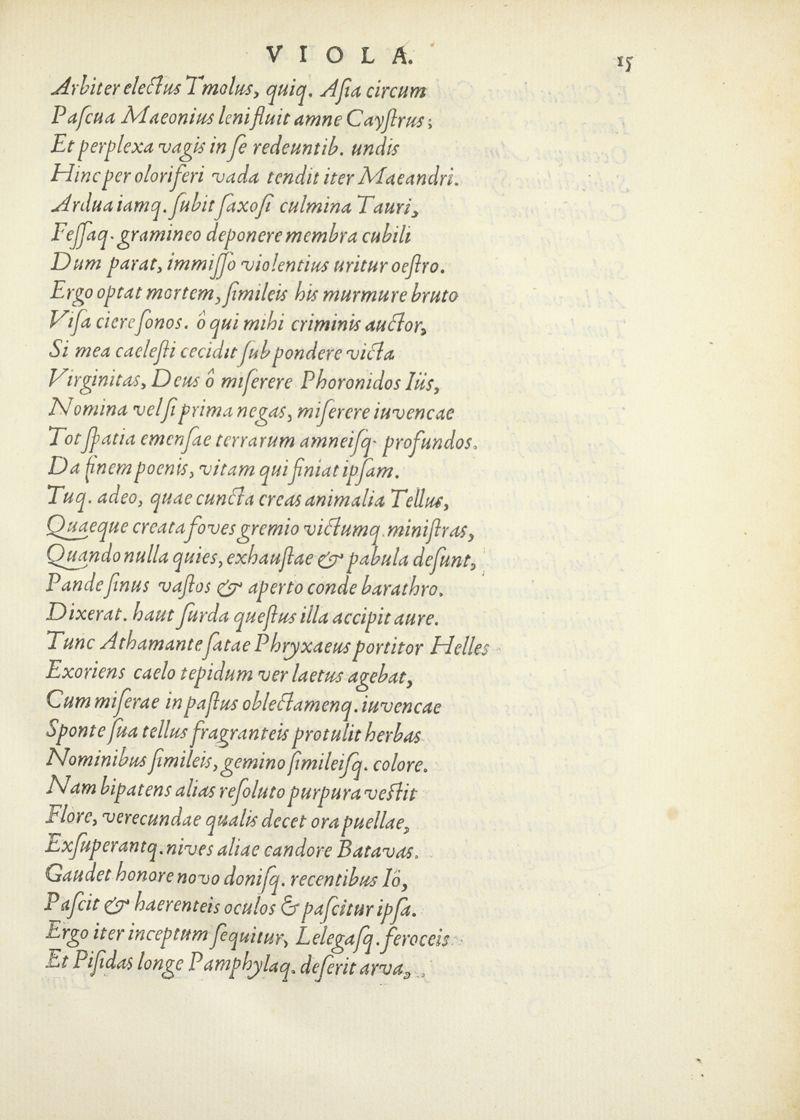 VIOLA. 15
Arbiter electus Tmolus, quiq. Asia circum
Pascua Maeonius leni fluit amne Caystrus;
Et perplexa vagis in se redeuntib. undis
Hinc per oloriferi vada tendit iter Maeandri.
Ardua iamq. subit saxosi culmina Tauri,
Fessaq. gramineo deponere membra cubili
Dum parat, immisso violentius uritur oestro.
Ergo optat mortem, simileis his murmure bruto
Visa ciere sonos. ô qui mihi criminis auctor,
Si mea caelesti cecidit sub pondere victa
Virginitas, Deus ô miserere Phoronidos Iüs,
Nomina vel si prima negas, miserere iuvencae
Tot spatia emensae terrarum amneisq. profundos.
Da finem poenis, vitam qui finiat ipsam.
Tuq. adeo, quae cuncta creas animalia Tellus,
Quaeque creata foves gremio victumq. ministras,
Quando nulla quies, exhaustae & pabula desunt,
Pande sinus vastos & aperto conde barathro.
Dixerat. haut surda questus illa accipit aure.
Tunc Athamante satae Phryxaeus portitor Helles
Exoriens caelo tepidum ver laetus agebat,
Cum miserae in pastus oblectamenq. iuvencae
Sponte sua tellus fragranteis protulit herbas
Nominibus simileis, gemino simileisq. colore.
Nam bipatens alias resoluto purpura vestit
Flore, verecundae qualis decet ora puellae,
Exsuperantq. nives aliae candore Batavas.
Gaudet honore novo donisq. recentibus Iô,
Pascit & haerenteis oculos & pascitur ipsa.
Ergo iter inceptum sequitur, Lelegasq. feroceis
Et Pisidas longe Pamphylaq. deserit arva,